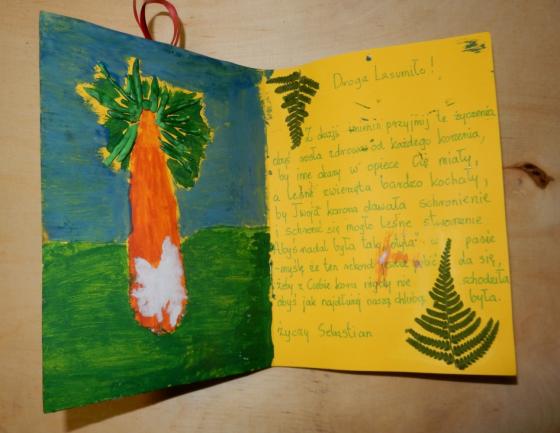 Droga Lasumiło!
Z okazji imienin przyjmij te życzenia
abyś rosła zdrowa od każdego korzenia,
by inne okazy w opiece Cię miały,
a leśne zwierzęta bardzo kochały,
by Twoja korona dawała schronienie
i schronić się mogło leśne stworzenie
Abyś nadal była taka w pasie
-myślę, że ten rekord da się,
żeby z Ciebie kora nigdy nie schodziła
abyś jak najdłużej naszą chlubą była.
życzy Sebastian